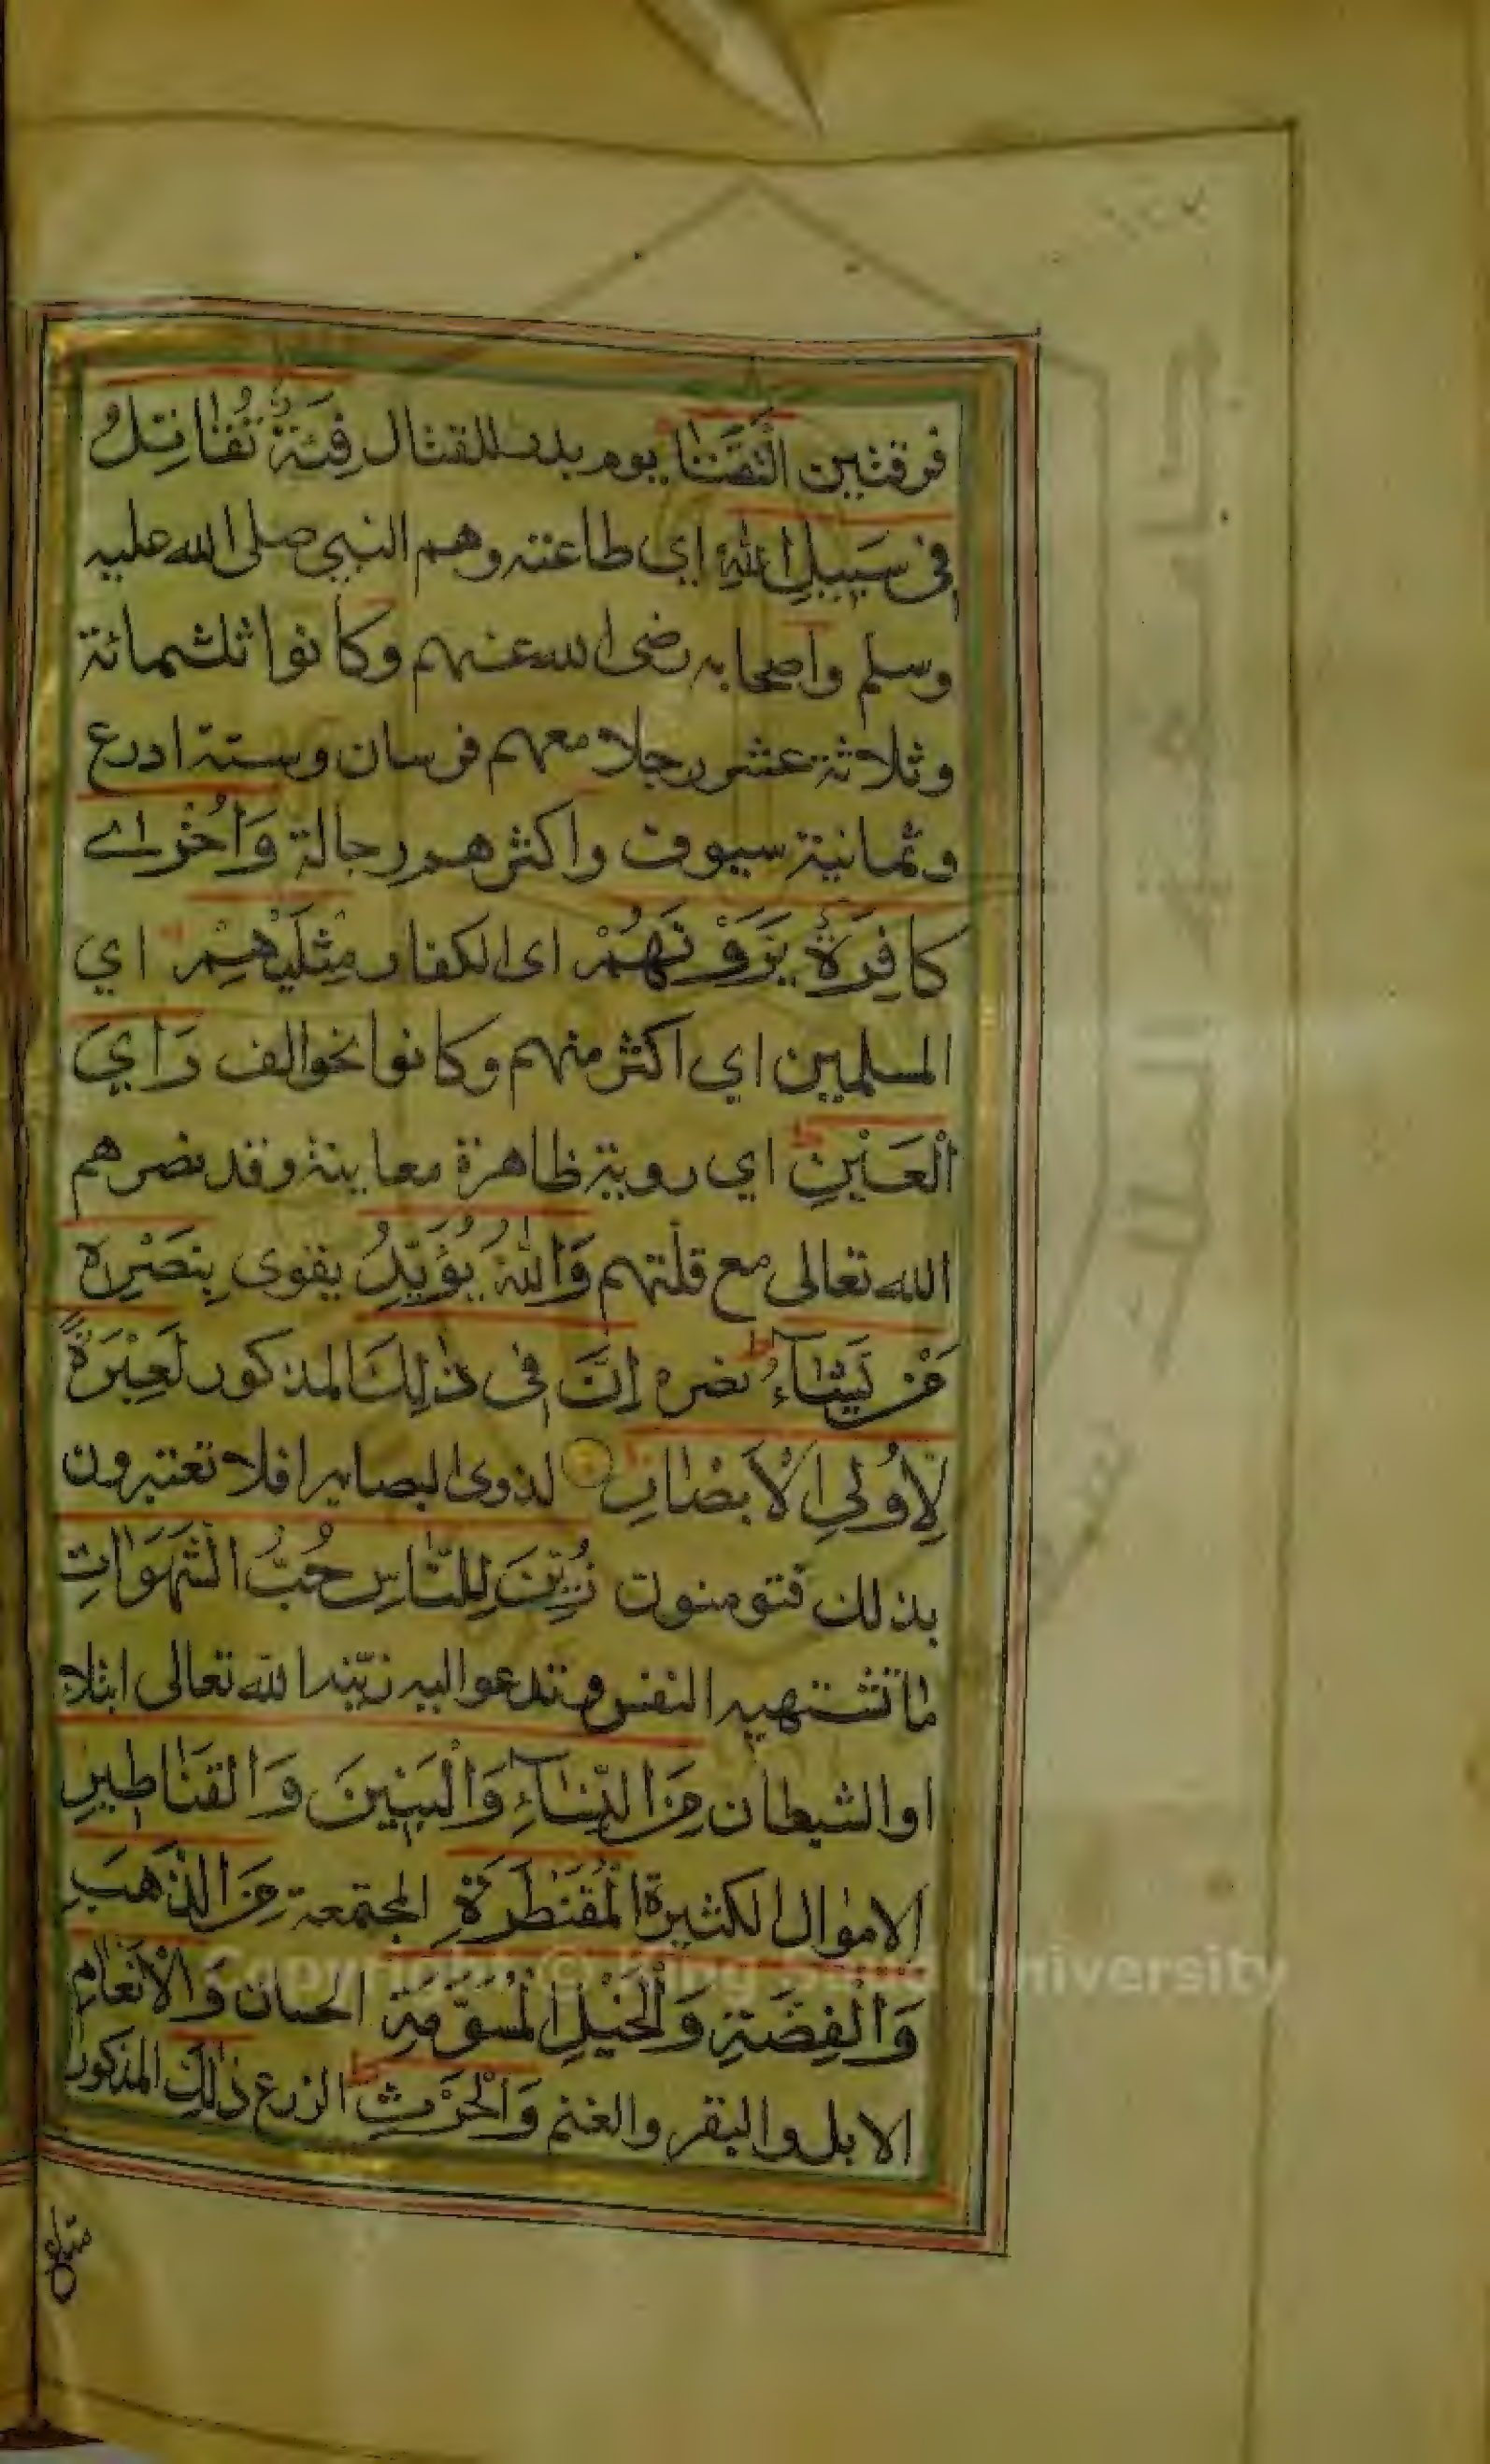 فرقتين الْتَقَتَا يوم بدر للقتال فِئَةٌ تُقَاتِلُ
فِى سَبِيلِ اللّٰهِ اي طاعته وهم النبي صلى الله عليه
وسلم واصحابه رضى الله عنهم وكانوا ثلثمائة
وثلاثة عشر رجلا معهم فرسان وستة ادرع
وثمانية سيوف واكثرهم رجالة وَاُخْرٰى
كَافِرَةٌ يَرَوْنَهُمْ اى الكفار مِثْلَيْهِمْ اي
المسلمين اي اكثر منهم وكانوا نحو الف رَاْيَ
الْعَيْنِ اي روية ظاهرة معاينة وقد نصرهم
الله تعالى مع قلتهم وَاللّٰهُ يُؤَيِّدُ يقوى بِنَصْرِهٖ
مَنْ يَشَآءُ نصره اِنَّ فِى ذٰلِكَ المذكور لَعِبْرَةً
لِاُولِى الْاَبْصَارِ لذوى البصاير افلا تعتبرون
بذلك فتومنون زُيِّنَ لِلنَّاسِ حُبُّ الشَّهَوَاتِ
ما تشتهيه النفس وتدعو اليه زيّنها الله تعالى ابتلاء
او الشيطان مِنَ النِّسَآءِ وَالْبَنِينَ وَالْقَنَاطِيرِ
الاموال الكثيرة الْمُقَنْطَرَةِ المجتمعة مِنَ الذَّهَبِ
وَالْفِضَّةِ وَالْخَيْلِ الْمُسَوَّمَةِ الحسان وَالْاَنْعَامِ
الابل والبقر والغنم وَالْحَرْثِ الزرع ذٰلِكَ المذكور
Copyright © King Saud University